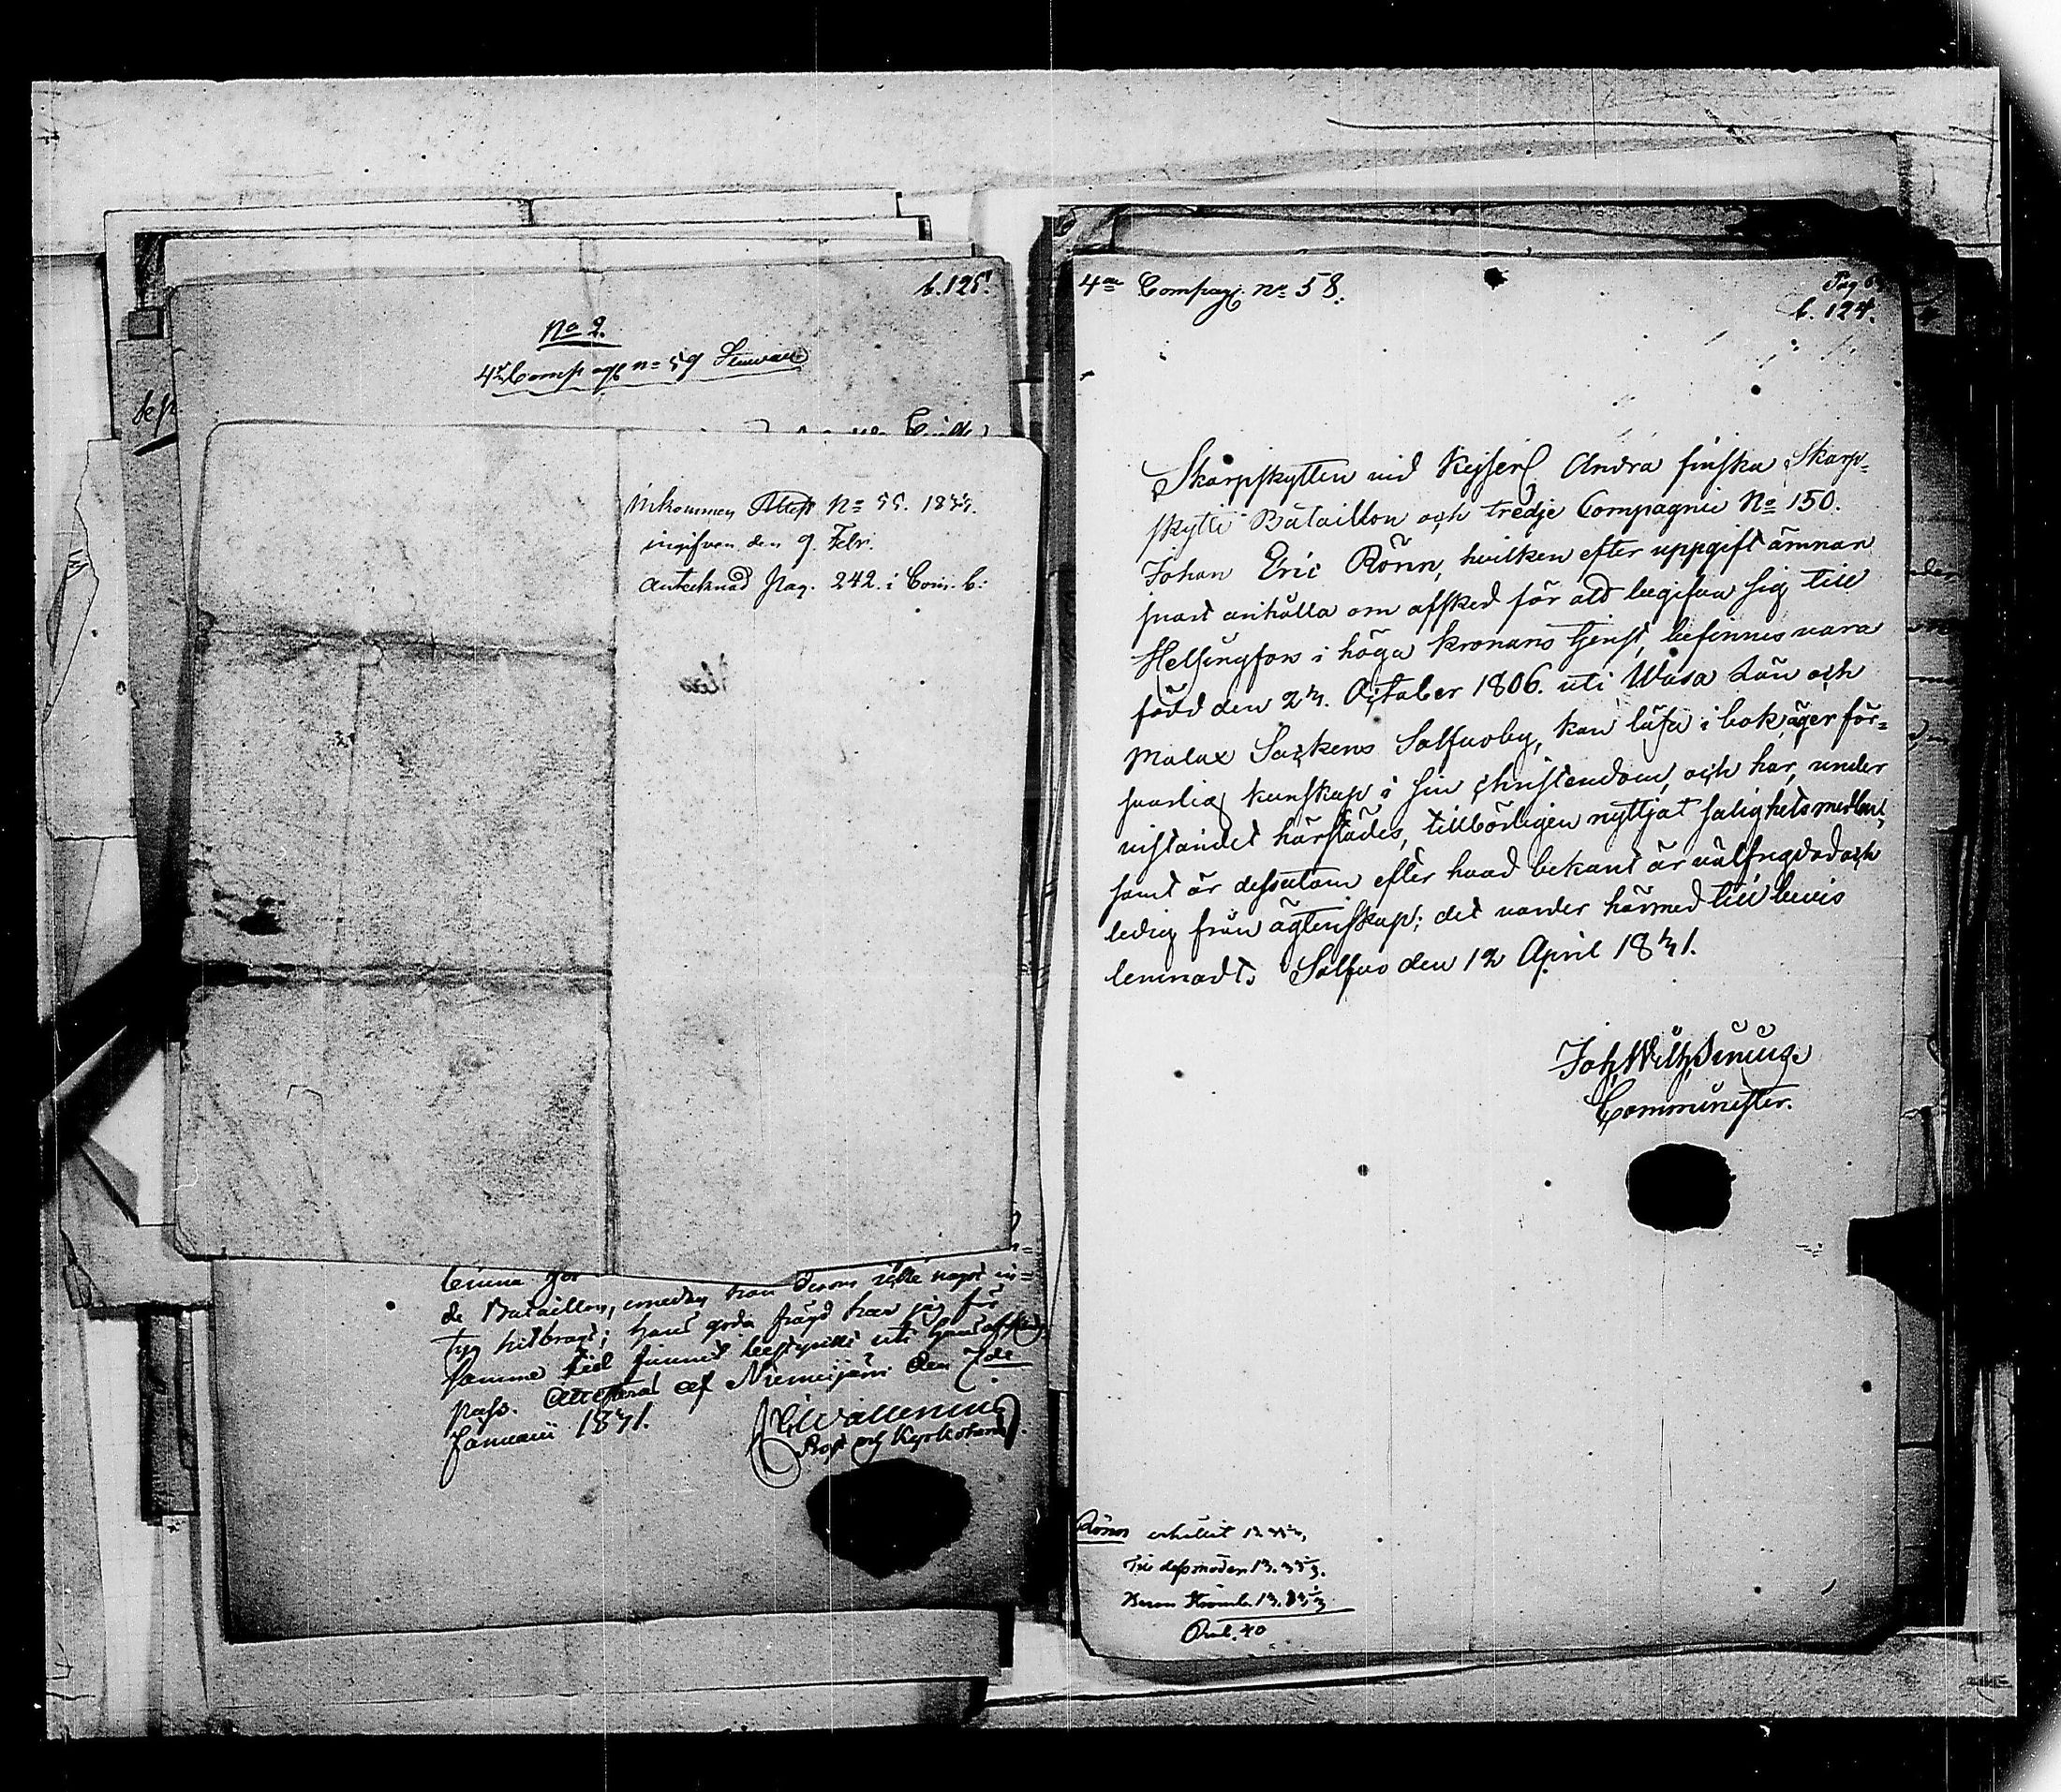 b. 125.
No 2.
4de Comp
Inkommen Attest No 55. 1831.
ingifven den 9. Febr.
Antecknad Pag. 242. i Com. b:
lemna
de Bataillon, emedan han derom icke något in-
tyg hitbragt; hans goda frägd har jag för
samma tid funnit bestyrkt uti hans afskeds
pass. Attesteras af Niemisjärvi den 7de
Januarii 1831.
Prost och Kyrkoherde.
4de Compag. No 58.
Pag
b. 124.
Skarpskytten vid Kejserl Andra finska Skarp-
skytte Bataillon och tredje Compagnie No 150.
Johan Eric Rönn, hvilken efter uppgift ämnar
snart anhålla om afsked för att begifva sig till
Helsingfors i höga Kronans tjenst, befinnes vara
född den 23. October 1806. uti Wasa Län och
Malax Sockens Solfwoby, kan läsa i bok, äger för-
svarlig kunskap i sin christendom, och har, under
vistandet härstädes, tillbörligen nyttjat salighetsmedlen,
samt är dessutom efter hvad bekant är välfregdad och
ledig från ägtenskap; det varder härmed till bevis
lemnadt. Solfwo den 12 April 1831.
Joh. Wilh.
Communister.
Rönn erhållit
Till dess moder 13. 33 1/3.
13. 33 1/3
Rub. 40